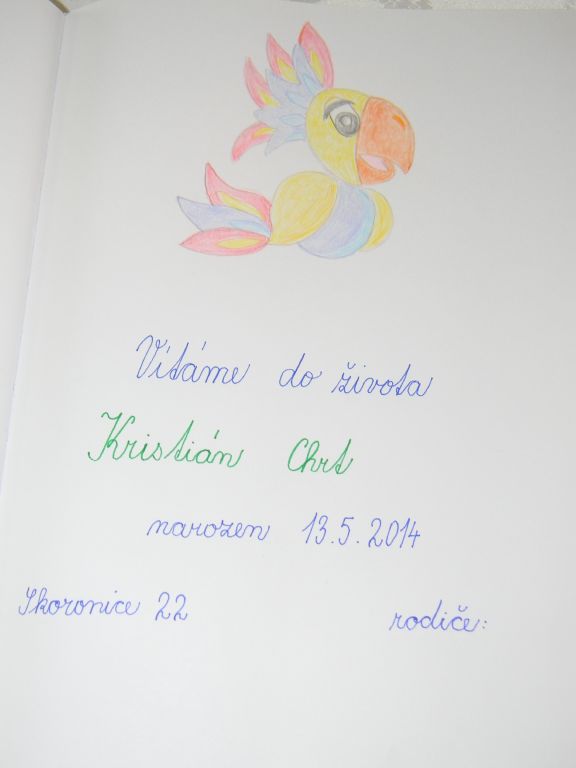 Vítáme do života
Kristián Chrt
narozen 13.5.2014
Skoronice 22 rodiče: